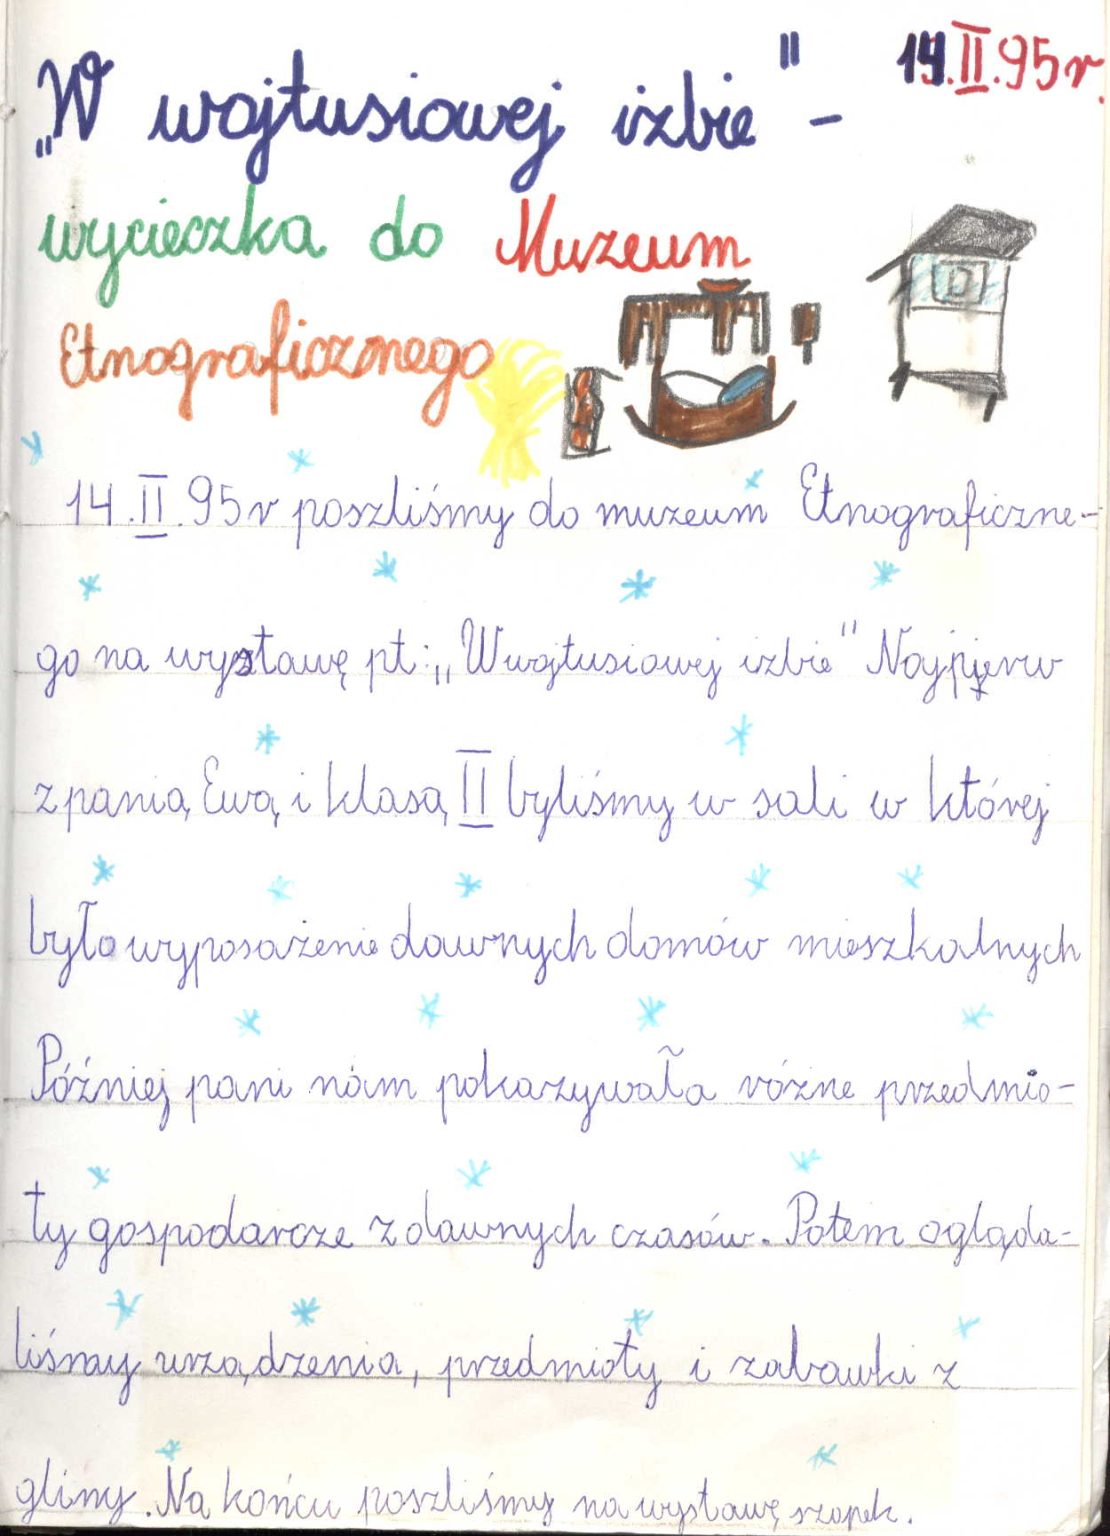 14.II.95r.
„W wojtusiowej izbie" -
wycieczka do Muzeum
Etnograficznego
D
14.II.95r poszliśmy do muzeum Etnograficzne-
go na wystawę pt: „W wojtusiowej izbie" Najpierw
z panią Ewą i klasą II byliśmy w sali w której
było wyposażenie dawnych domów mieszkalnych
Później pani nam pokazywała różne przedmio-
ty gospodarcze z dawnych czasów. Potem ogląda-
liśmy urządzenia, przedmioty i zabawki z
gliny. Na końcu poszliśmy na wystawę szopek.